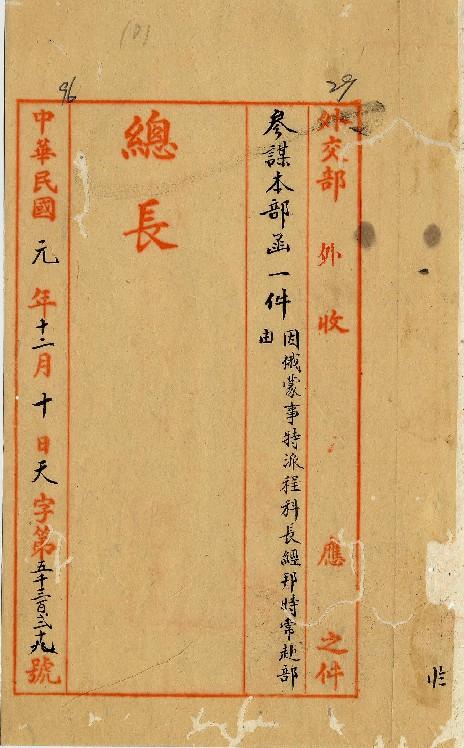 外交部 外 收 應 之件
參謀本部函一件
因俄蒙事特派程科長經邦時常赴部
由
總長
中華民國元年十二月十日天字第五千三百二十九號
29
96
(0)